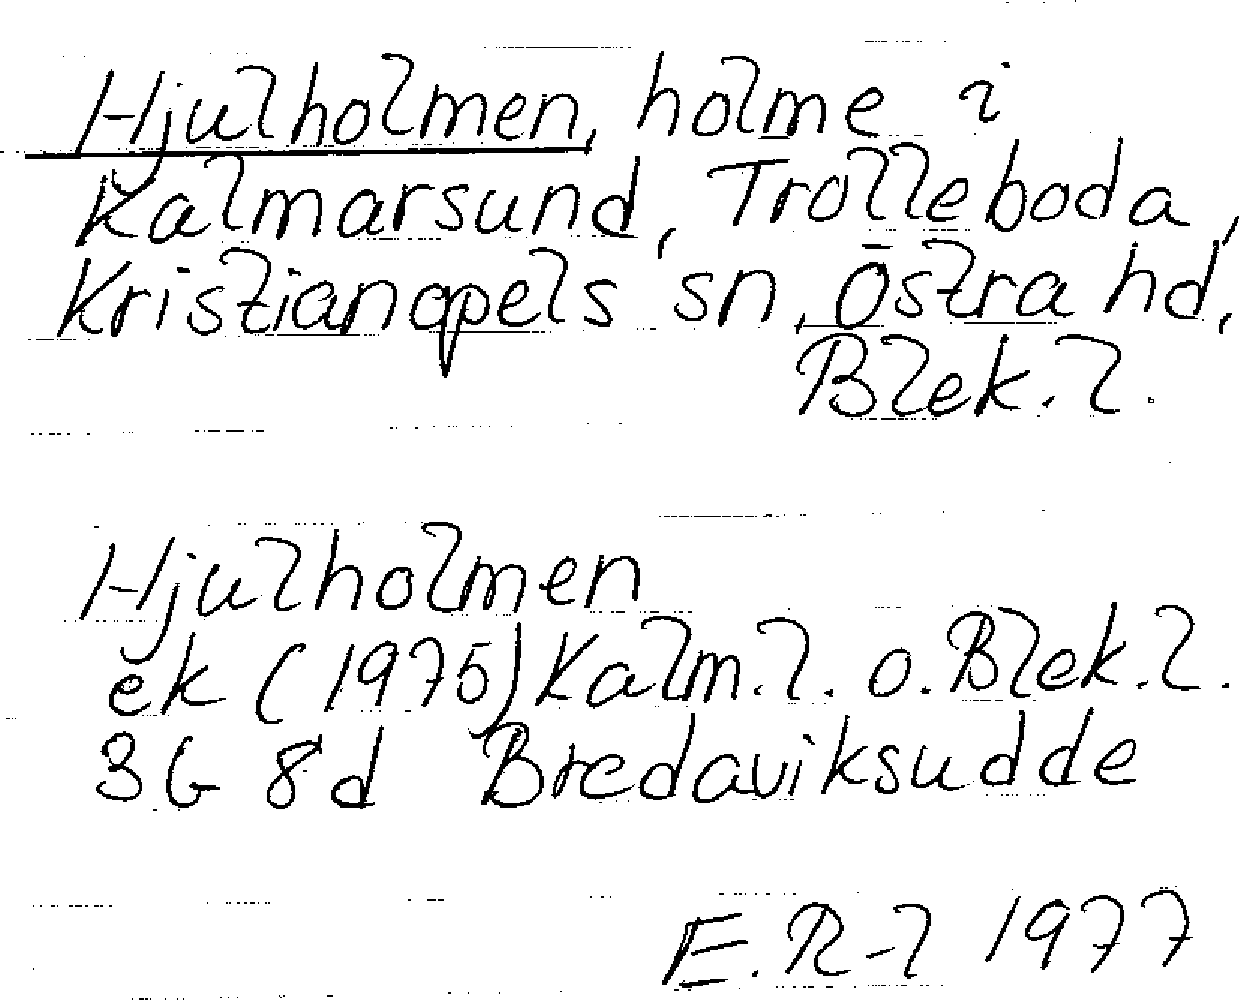 Hjulholmen, holme i
Kalmarsund, Trolleboda,
Kristianopels sn, Östra hd,
Blek. l.
Hjulholmen
ek (1975) Kalm. l. o. Blek. l.
3G 8d Bredaviksudde
E. R-l 1977